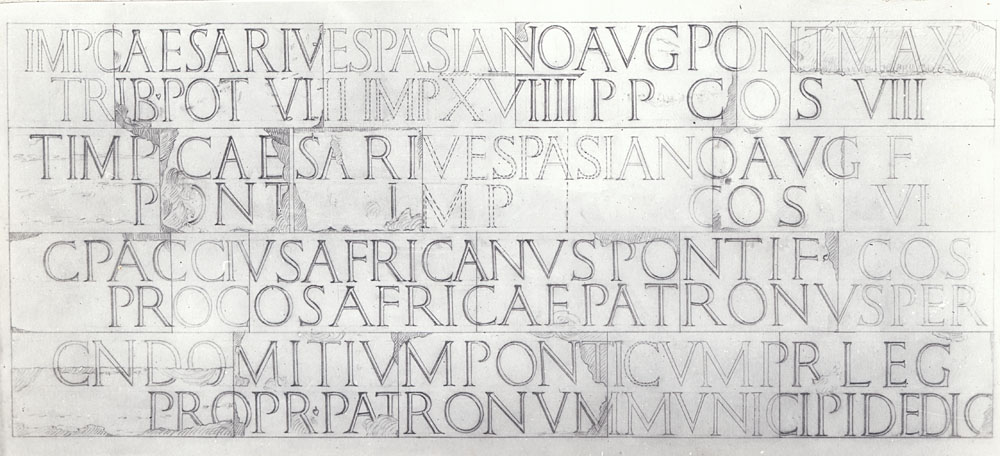 IMP CAESARI VESPASIANO AVG PONT MAX
TRIB·POT VIIII IMP XVIIII P P COS VIII
T IMP CAESARI VESPASIANO AVG F
PONT IMP COS VI
C PACCIVS AFRICANVS PONTIF· COS
PROCOS AFRICAE PATRONVS PER
CN DOMITIVM PONTICVM PR LEG
PRO PR·PATRONVM MVNICIPI DEDIC